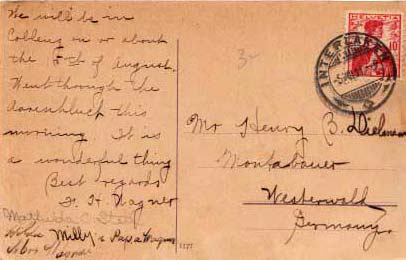 We will be in
Coblenz on or about
the 15th of August.
Went through the
Aareschlucht this
morning It is
a wonderful thing
Best regards
F. H. Wagner
Mathilda C.
Milly's Papa Wagner
3-
HELVETIA
10
INTERLAKEN
Mr Henry B. Dielmann
Montabauer
Westerwald
Germany